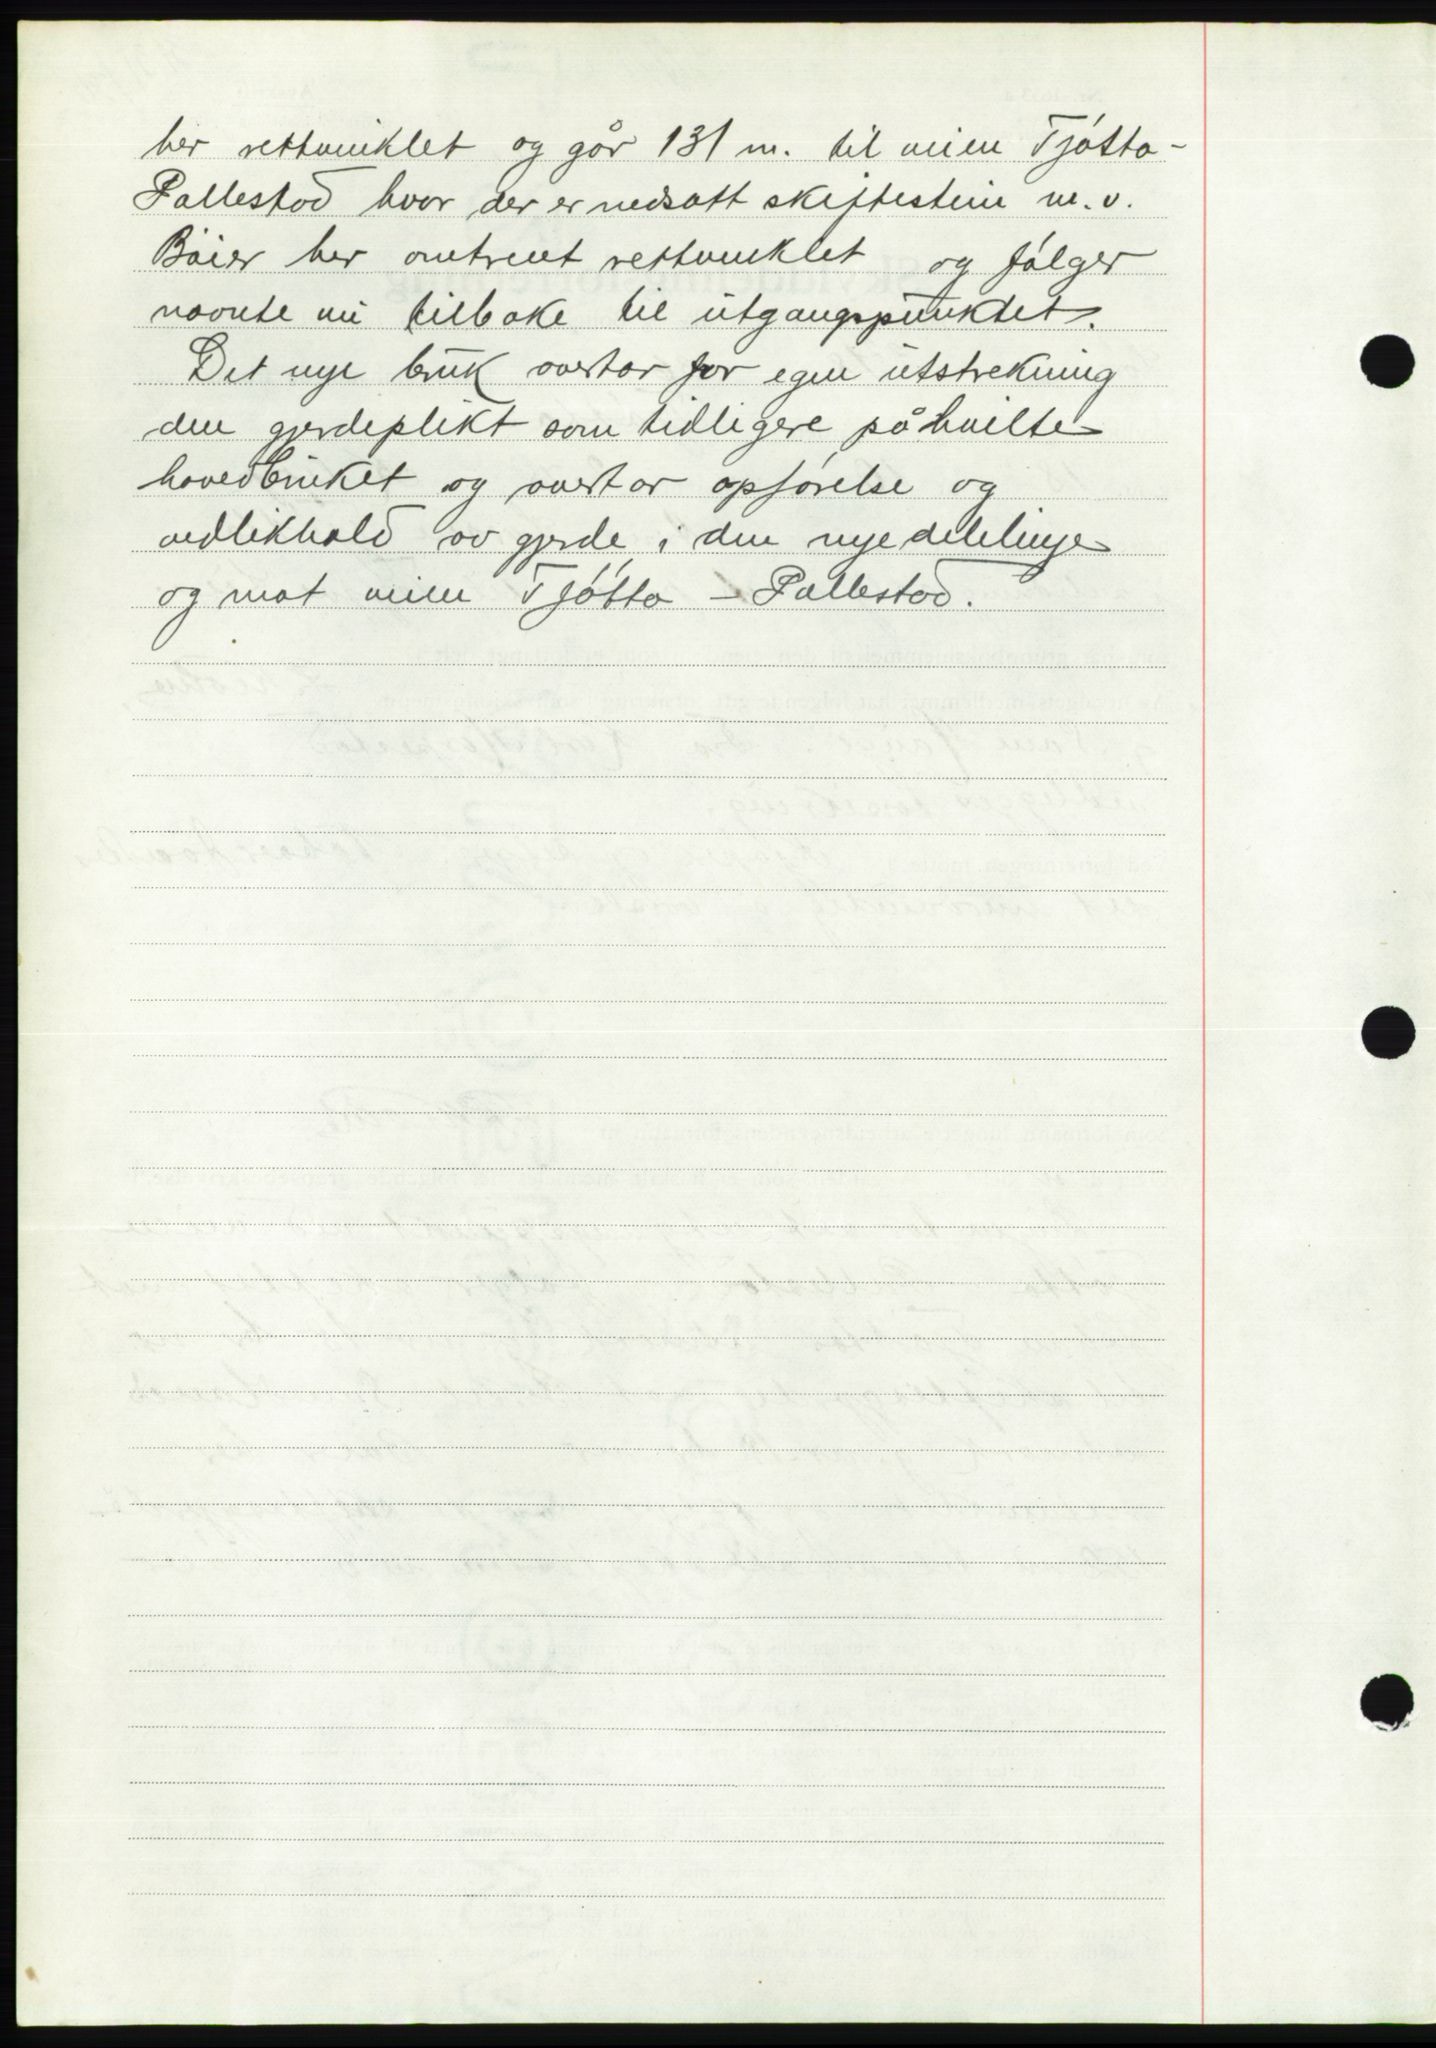 her rettvinklet og går 131 m. til veien Tjøtta-
Pallestad hvor der er nedsatt skiftestein m. v.
Bøier her omtrent rettvinklet og følger
nevnte vei tilbake til utgangspunktet.
Det nye bruk overtar for egen utstrekning
den gjerdeplikt som tidligere påhvilte
hovedbruket og overtar opførelse og
vedlikhold av gjerde i den nye delelinje
og mot veien Tjøtta - Pallestad.